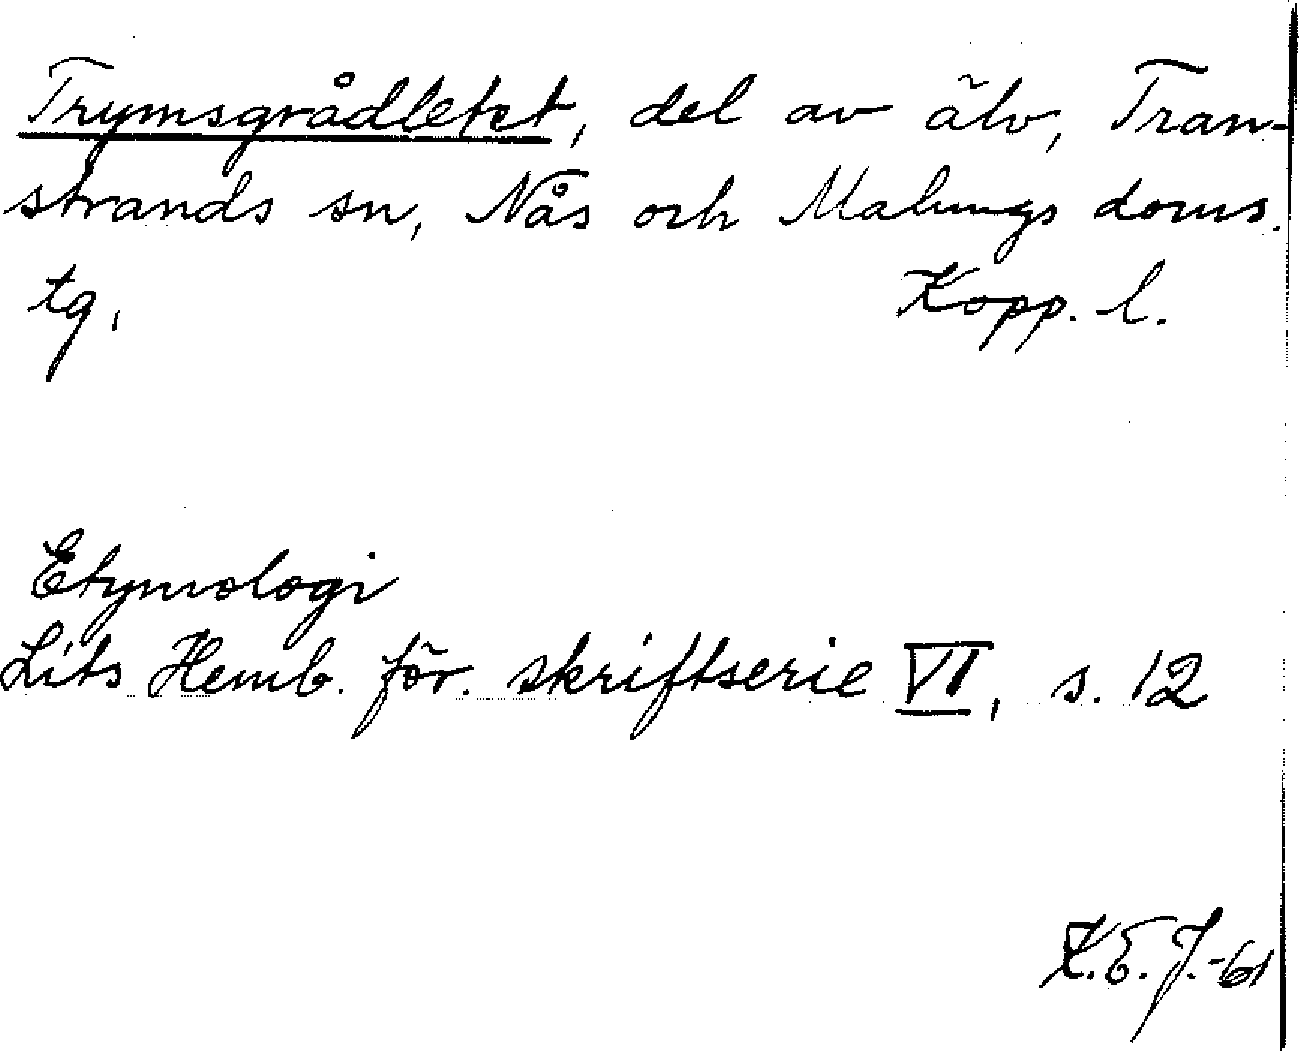 Trymsgrådletet, del av älv, Tran-
strands sn, Nås och Malungs doms.
tg. Kopp. l.
Etymologi
Lits Hemb. för. skriftserie VI, s. 12
K. E. J. -61